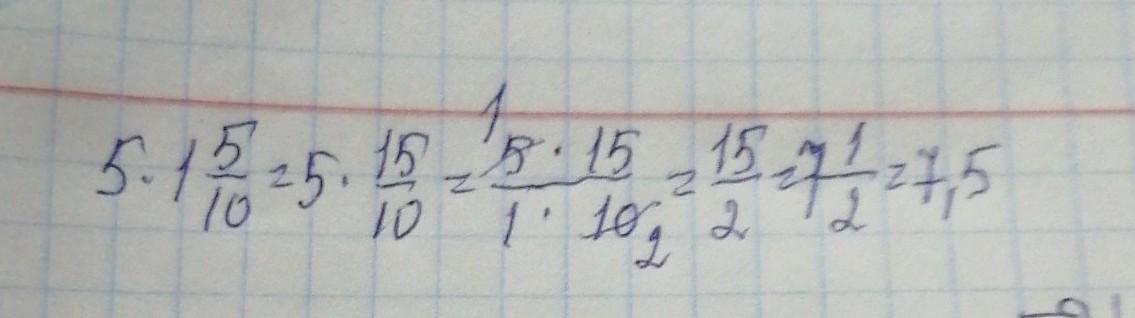 5 · 1 5/10 = 5 · 15/10 = 1 5 · 15 / 1 · 10 2 = 15/2 = 7 1/2 = 7,5